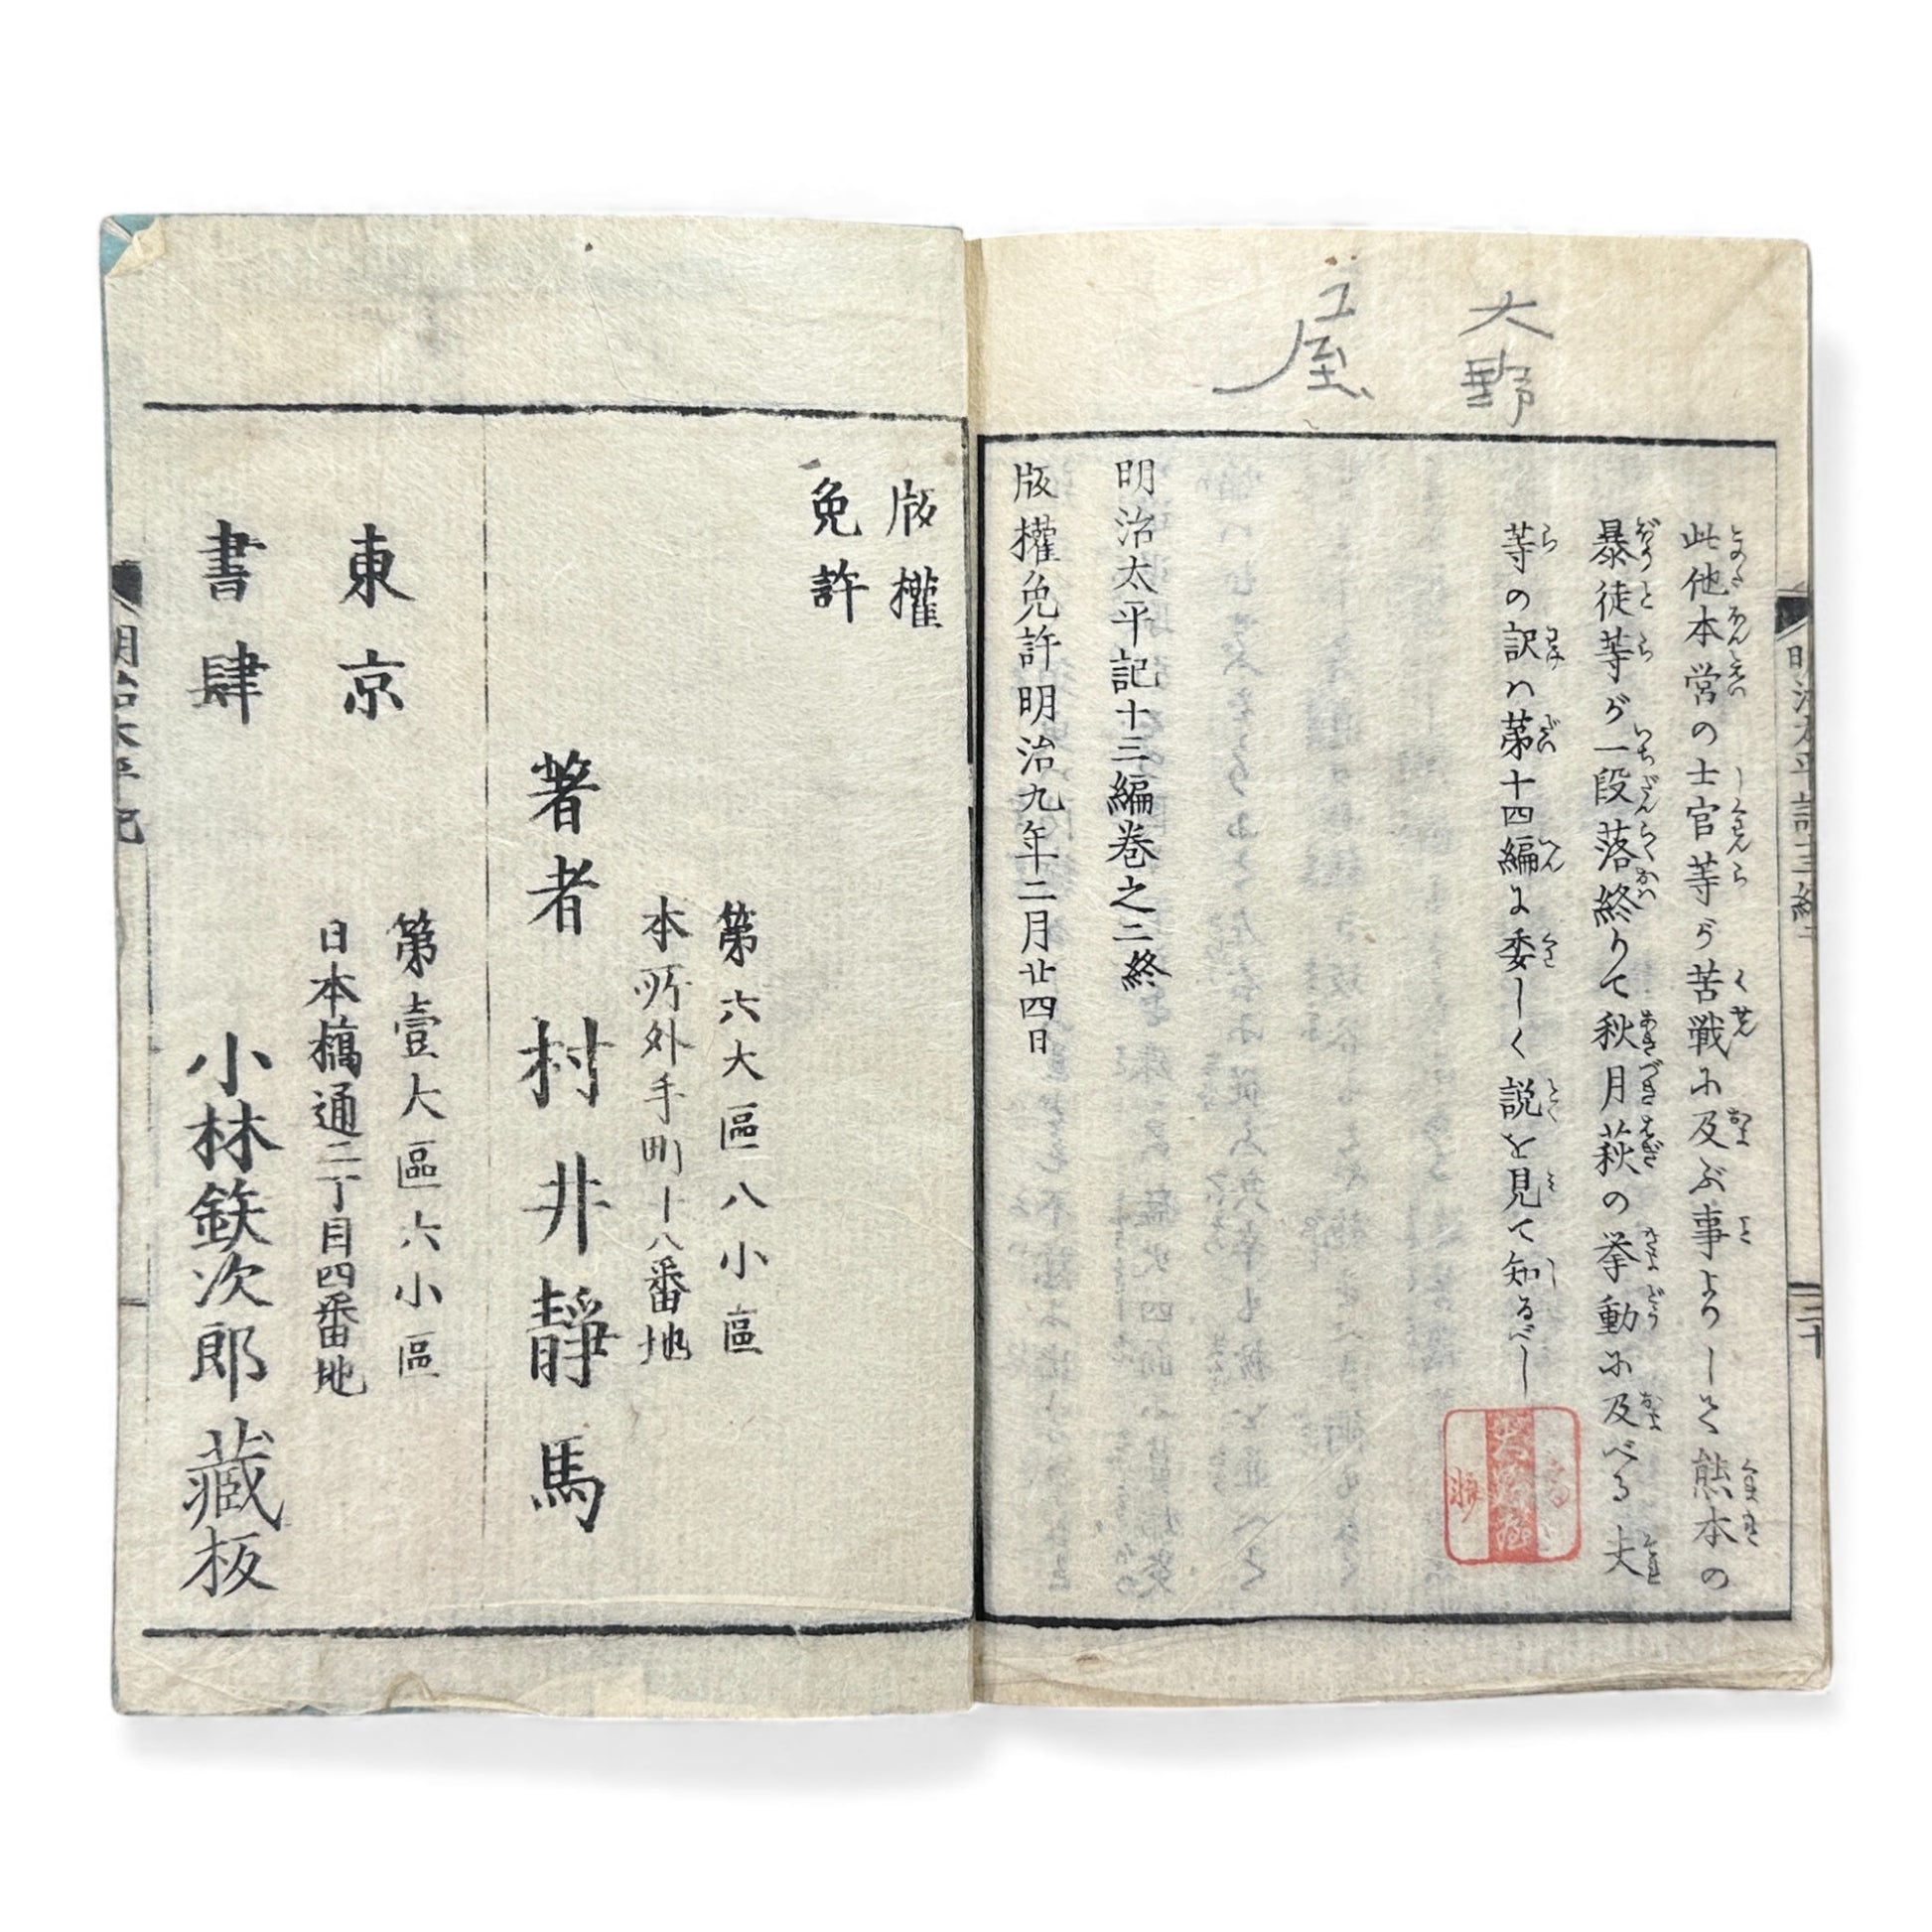 大野
工屋
此他本営の士官等が苦戦に及ぶ事よりして熊本の
暴徒等が一段落終りて秋月萩の挙動に及べる夫
等の訳ハ第十四編に委しく説を見て知るべし
明治太平記十三編巻之二終
版權免許明治九年二月廿四日
版權
免許
第六大區八小區
本所外手町十八番地
著者 村井靜馬
第壹大區六小區
日本橋通二丁目四番地
東京
書肆 小林鉄次郎藏板
明治太平記